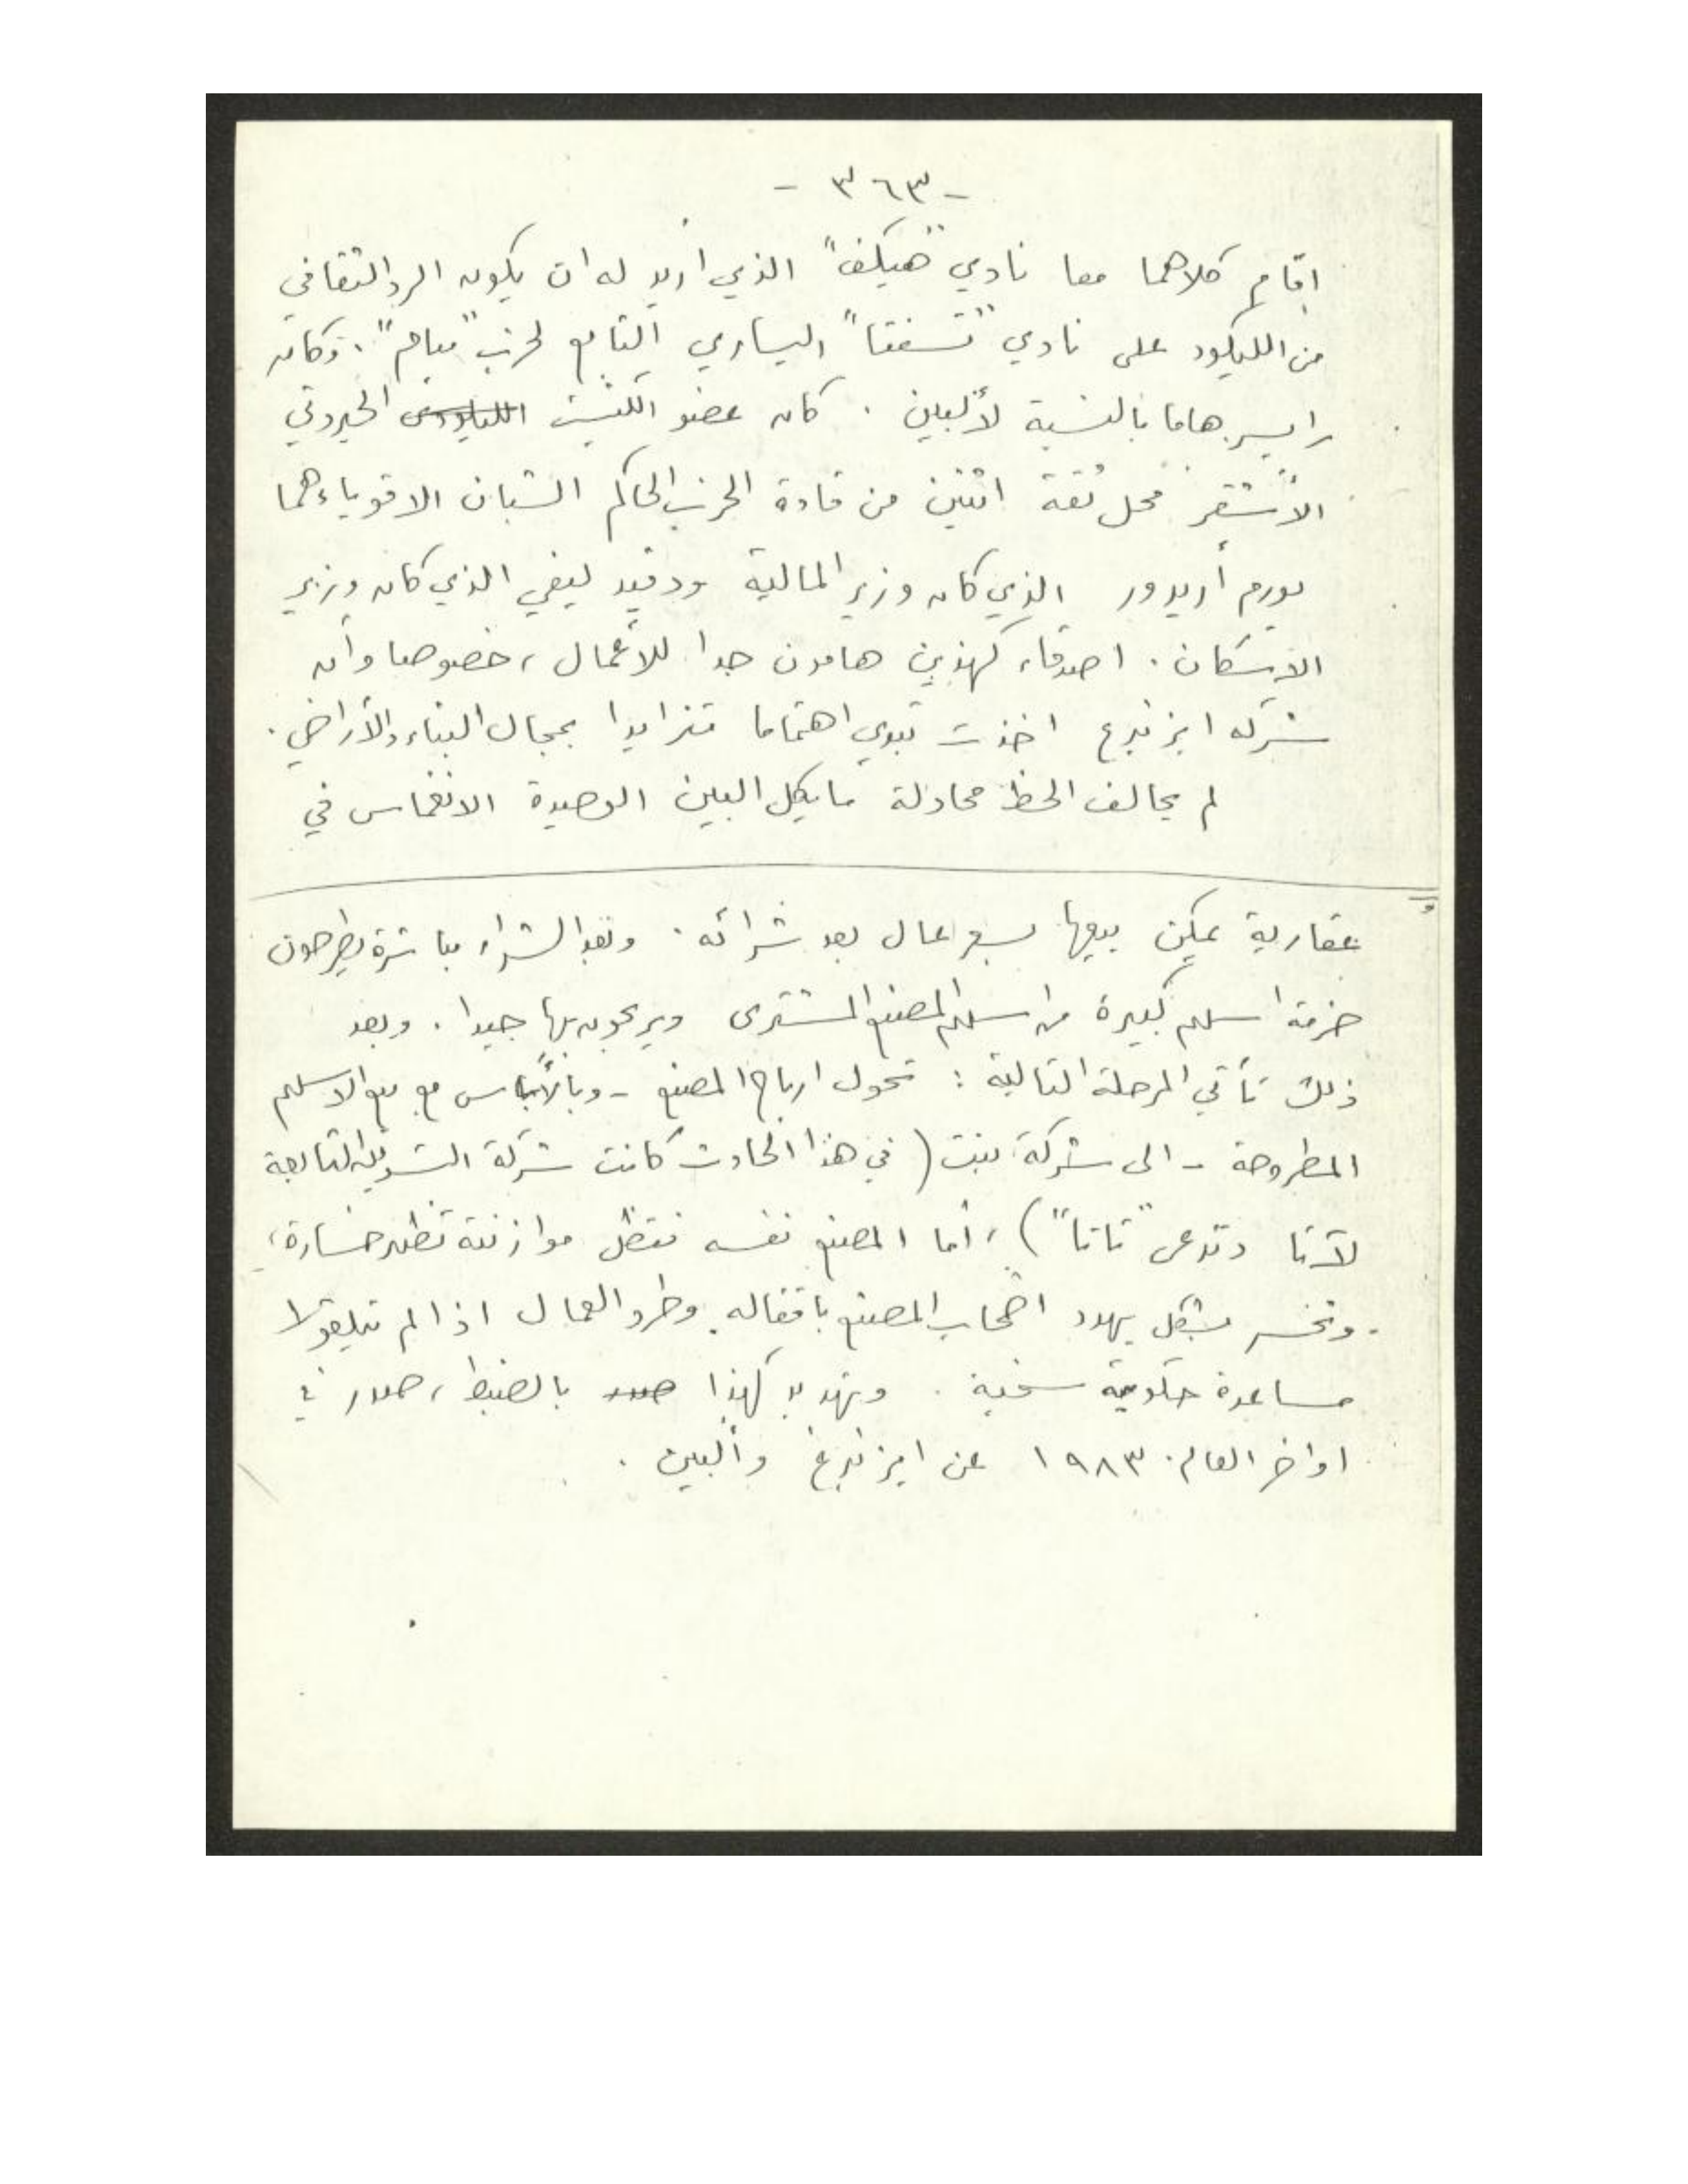 - ٣٦٣ -
اقام كلاهما معا نادي "هيكف" الذي اريد له ان يكون الرد الثقافي
من الليكود على نادي "تسفتا" اليساري التابع لحزب "مبام". وكان
رايسر هاما بالنسبة لألبين . كان عضو الكنيست الحيروتي
الأشقر محل ثقة اثنين من قادة الحزب الحاكم الشبان الاقوياء هما
يورم أريدور الذي كان وزير المالية ودفيد ليفي الذي كان وزير
الإسكان . اصدقاء كهذين هامون جدا للأعمال ، خصوصا وان
شركة ايزنبرغ اخذت تبدي اهتماما متزايدا بمجال البناء والأراضي .
لم يحالف الحظ محاولة مايكل البين الوحيدة الانغماس في
عقارية يمكن بيعها بسعر عال بعد شرائه . وبعد الشراء مباشرة يطرحون
حزمة اسهم كبيرة من اسهم المصنع المشترى ويربحون بها جيدا . وبعد
ذلك تأتي المرحلة التالية : تحول ارباح المصنع - وبالأساس مع بيع الاسهم
المطروحة - الى شركة بنت (في هذا الحادث كانت شركة التسويق التابعة
لآتا وتدعى "تاتا") ، أما المصنع نفسه فتظل موازنته تظهر خسارة ،
وتخسر بشكل يهدد اصحاب المصنع باقفاله وطرد العمال اذا لم يتلقوا
مساعدة حكومية سخية . وتهديد كهذا بالضبط ، صدر في
اواخر العام ١٩٨٣ عن ايزنبرغ وألبين .